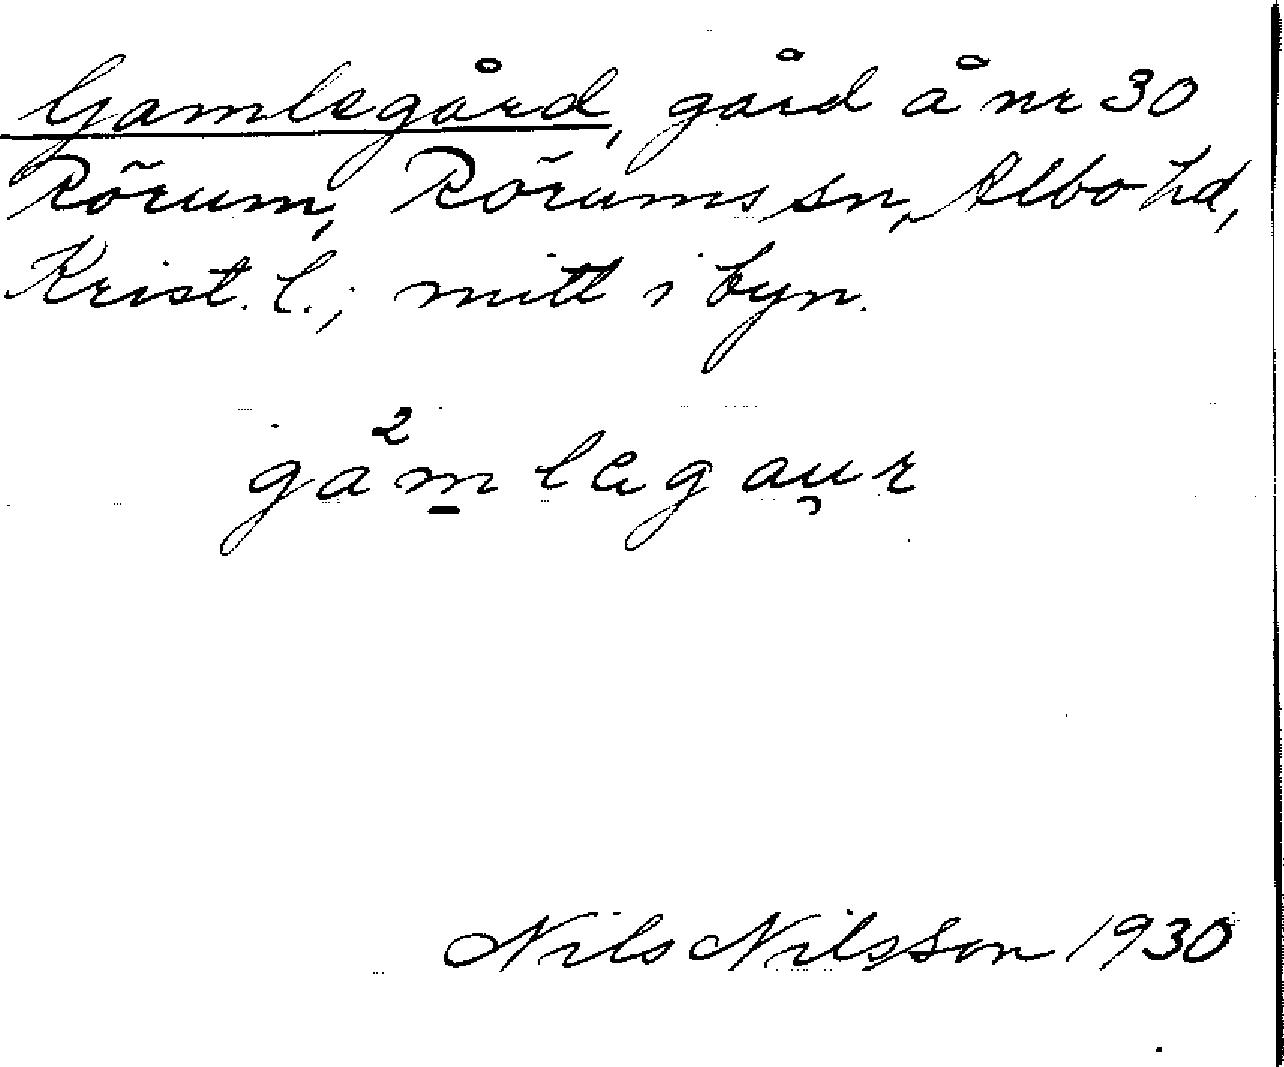 Gamlegård, gård å nr 30
Rörum, Rörums sn, Albo hd,
Krist. l.; mitt i byn.
ga²m̱legau̯r
Nils Nilsson 1930